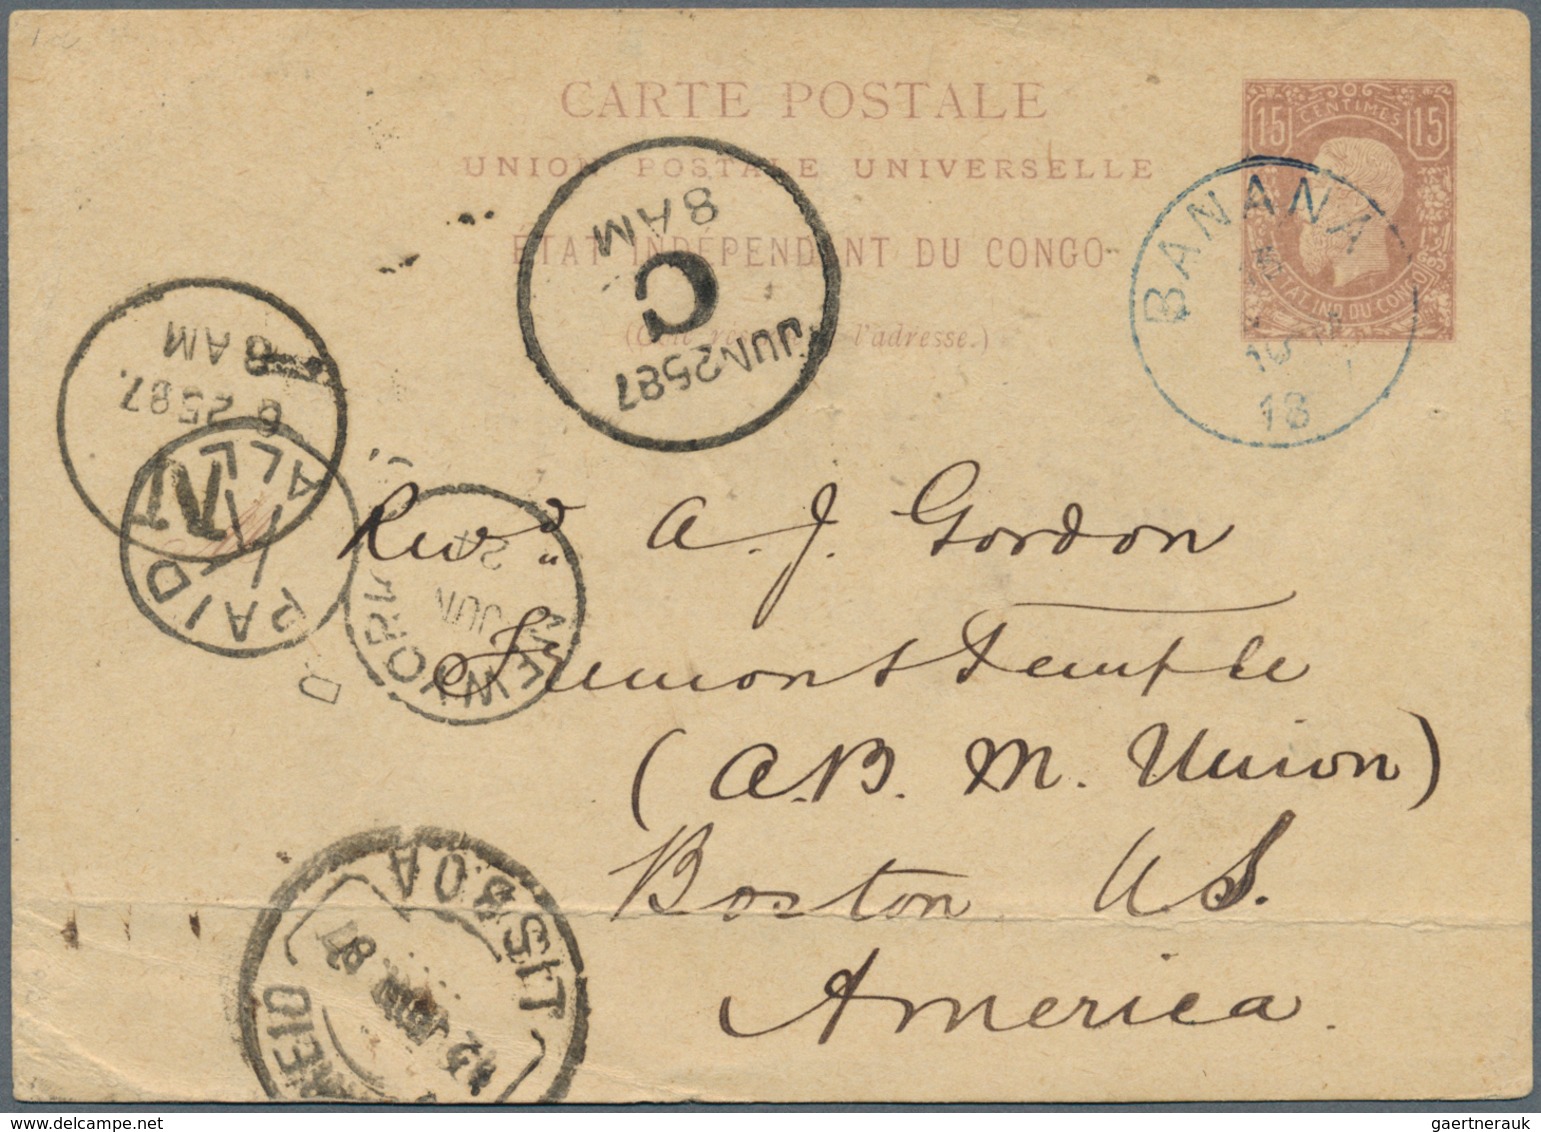 CARTE POSTALE
UNION POSTALE UNIVERSELLE
ÉTAT INDÉPENDANT DU CONGO
l'adresse.)
15 CENTIMES 15
ETAT IND. DU CONGO
BANANA
18
8 AM
C
JUN 25 87
8 AM
25 87.
PAID
ALL
NEW YORK
JUN
24
LISBOA
87
Revd. A. J. Gordon
Tremont Temple
(A. B. M. Union)
Boston U S.
America.
gaertnerauk / delcampe.net